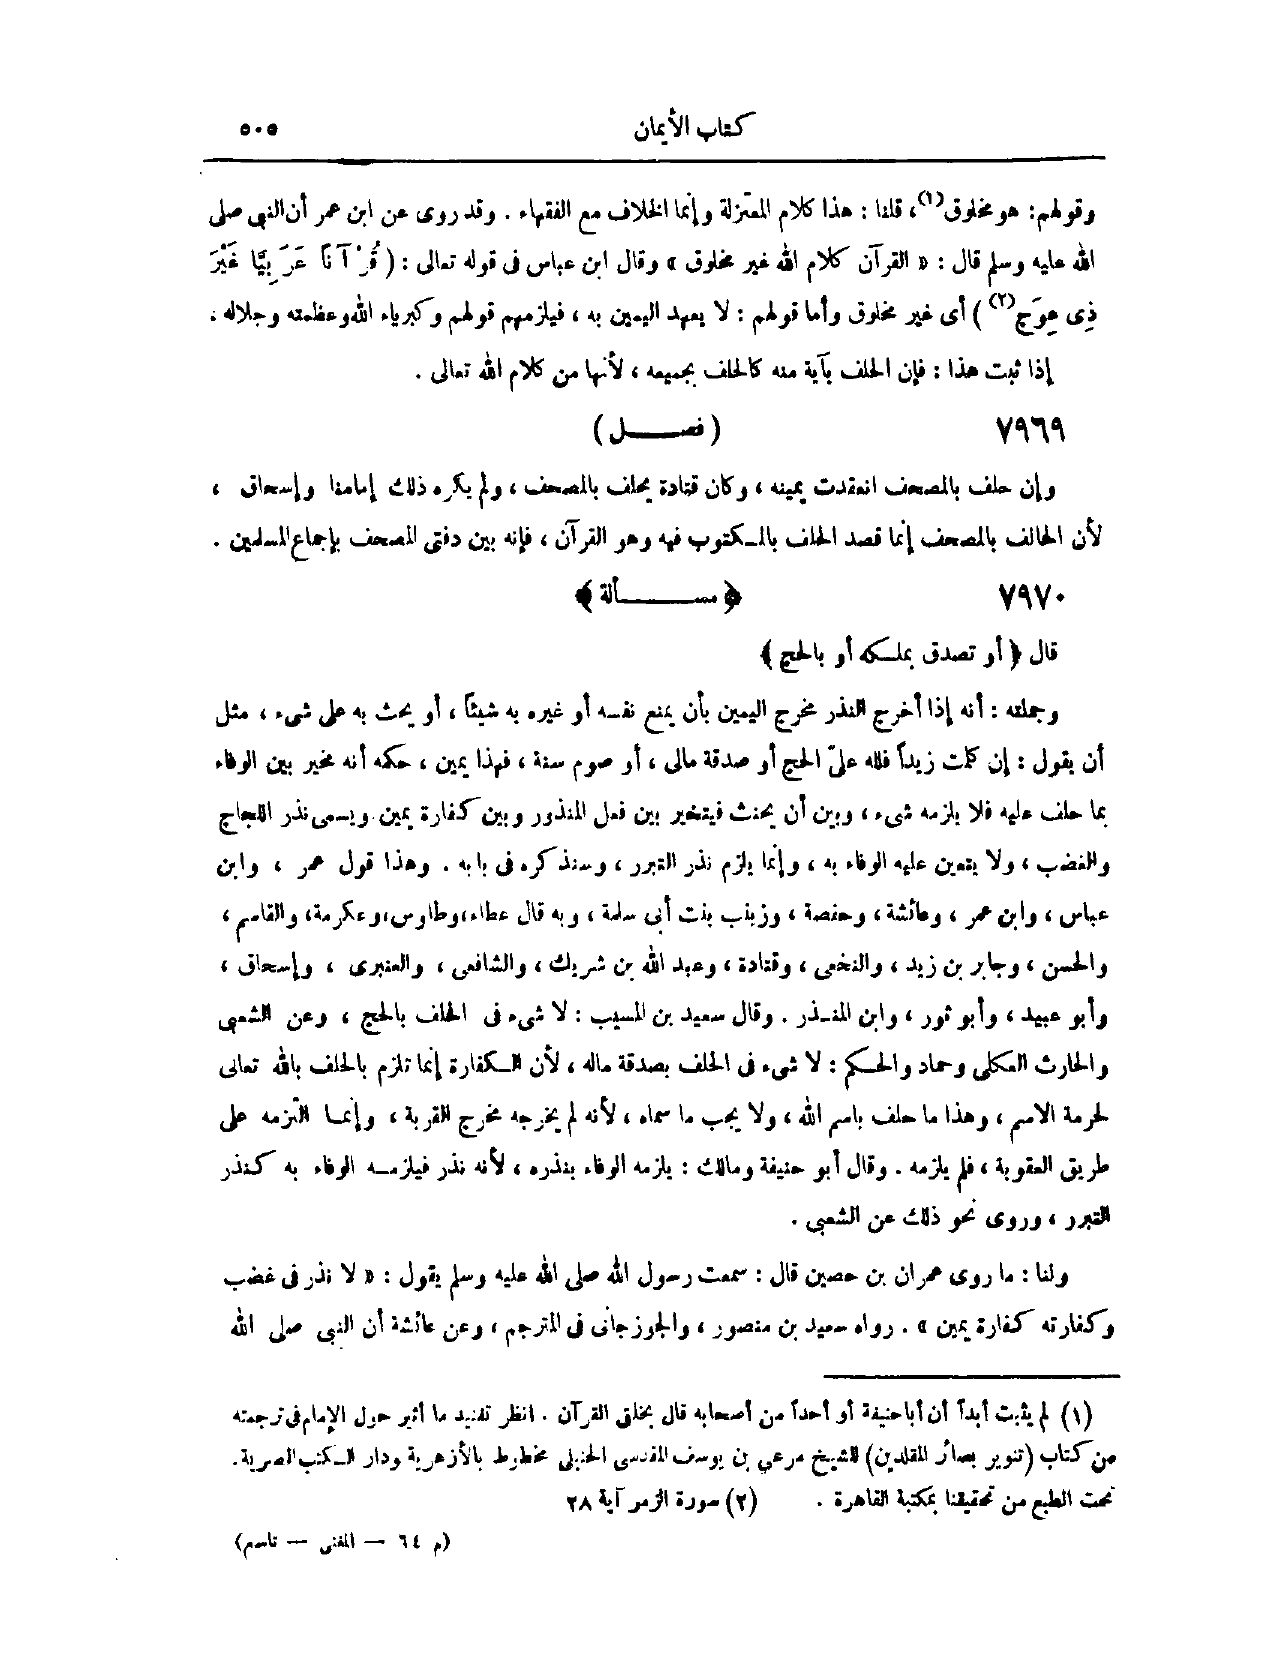 كتاب الأيمان ٥٠٥
وقولهم: هو مخلوق(١)، قلنا : هذا كلام المعتزلة وإنما الخلاف مع الفقهاء . وقد روى عن ابن عمر أن النبى صلى
الله عليه وسلم قال : « القرآن كلام الله غير مخلوق » وقال ابن عباس فى قوله تعالى : ( قُرْآنًا عَرَبِيًّا غَيْرَ
ذِى عِوَجٍ(٢) ) أى غير مخلوق وأما قولهم : لا يعهد اليمين به ، فيلزمهم قولهم وكبرياء الله وعظمته وجلاله .
إذا ثبت هذا : فإن الحلف بآية منه كالحلف بجميعه ، لأنها من كلام الله تعالى .
٧٩٦٩ ( فصــــل )
وإن حلف بالمصحف انعقدت يمينه ، وكان قتادة يحلف بالمصحف ، ولم يكره ذلك إمامنا وإسحاق ،
لأن الحالف بالمصحف إنما قصد الحلف بالمكتوب فيه وهو القرآن ، فإنه بين دفتى المصحف بإجماع المسلمين .
٧٩٧٠ ﴿ مســــــألة ﴾
قال ﴿ أو تصدق بملكه أو بالحج ﴾
وجملته : أنه إذا أخرج النذر مخرج اليمين بأن يمنع نفسه أو غيره به شيئاً ، أو يحث به على شىء ، مثل
أن يقول : إن كلمت زيداً فلله علىّ الحج أو صدقة مالى ، أو صوم سنة ، فهذا يمين ، حكمه أنه مخير بين الوفاء
بما حلف عليه فلا يلزمه شىء ، وبين أن يحنث فيتخير بين فعل المنذور وبين كفارة يمين ويسمى نذر اللجاج
والغضب ، ولا يتعين عليه الوفاء به ، وإنما يلزم نذر التبرر ، وسنذكره فى بابه . وهذا قول عمر ، وابن
عباس ، وابن عمر ، وعائشة ، وحفصة ، وزينب بنت أبى سلمة ، وبه قال عطاء، وطاوس، وعكرمة، والقاسم ،
والحسن ، وجابر بن زيد ، والنخعى ، وقتادة ، وعبد الله بن شريك ، والشافعى ، والعنبرى ، وإسحاق ،
وأبو عبيد ، وأبو ثور ، وابن المنـذر . وقال سعيد بن المسيب : لا شىء فى الحلف بالحج ، وعن الشعبى
والحارث العكلى وحماد والحكم : لا شىء فى الحلف بصدقة ماله ، لأن الكفارة إنما تلزم بالحلف بالله تعالى
لحرمة الاسم ، وهذا ما حلف باسم الله ، ولا يجب ما سماه ، لأنه لم يخرجه مخرج القربة ، وإنمـا التزمه على
طريق العقوبة ، فلم يلزمه . وقال أبو حنيفة ومالك : يلزمه الوفاء بنذره ، لأنه نذر فيلزمـه الوفاء به كنذر
التبرر ، وروى نحو ذلك عن الشعبى .
ولنا : ما روى عمران بن حصين قال : سمعت رسول الله صلى الله عليه وسلم يقول : « لا نذر فى غضب
وكفارته كفارة يمين » . رواه سعيد بن منصور ، والجوزجانى فى المترجم ، وعن عائشة أن النبى صلى الله
(١) لم يثبت أبداً أن أباحنيفة أو أحداً من أصحابه قال بخلق القرآن . انظر تفنيد ما أثير حول الإمام فى ترجمته
من كتاب (تنوير بصائر المقلدين) للشيخ مرعي بن يوسف المقدسى الحنبلى مخطوط بالأزهرية ودار الكتب المصرية.
تحت الطبع من تحقيقنا بمكتبة القاهرة . (٢) سورة الزمر آية ٢٨
(م ٦٤ — المغنى — تاسع)